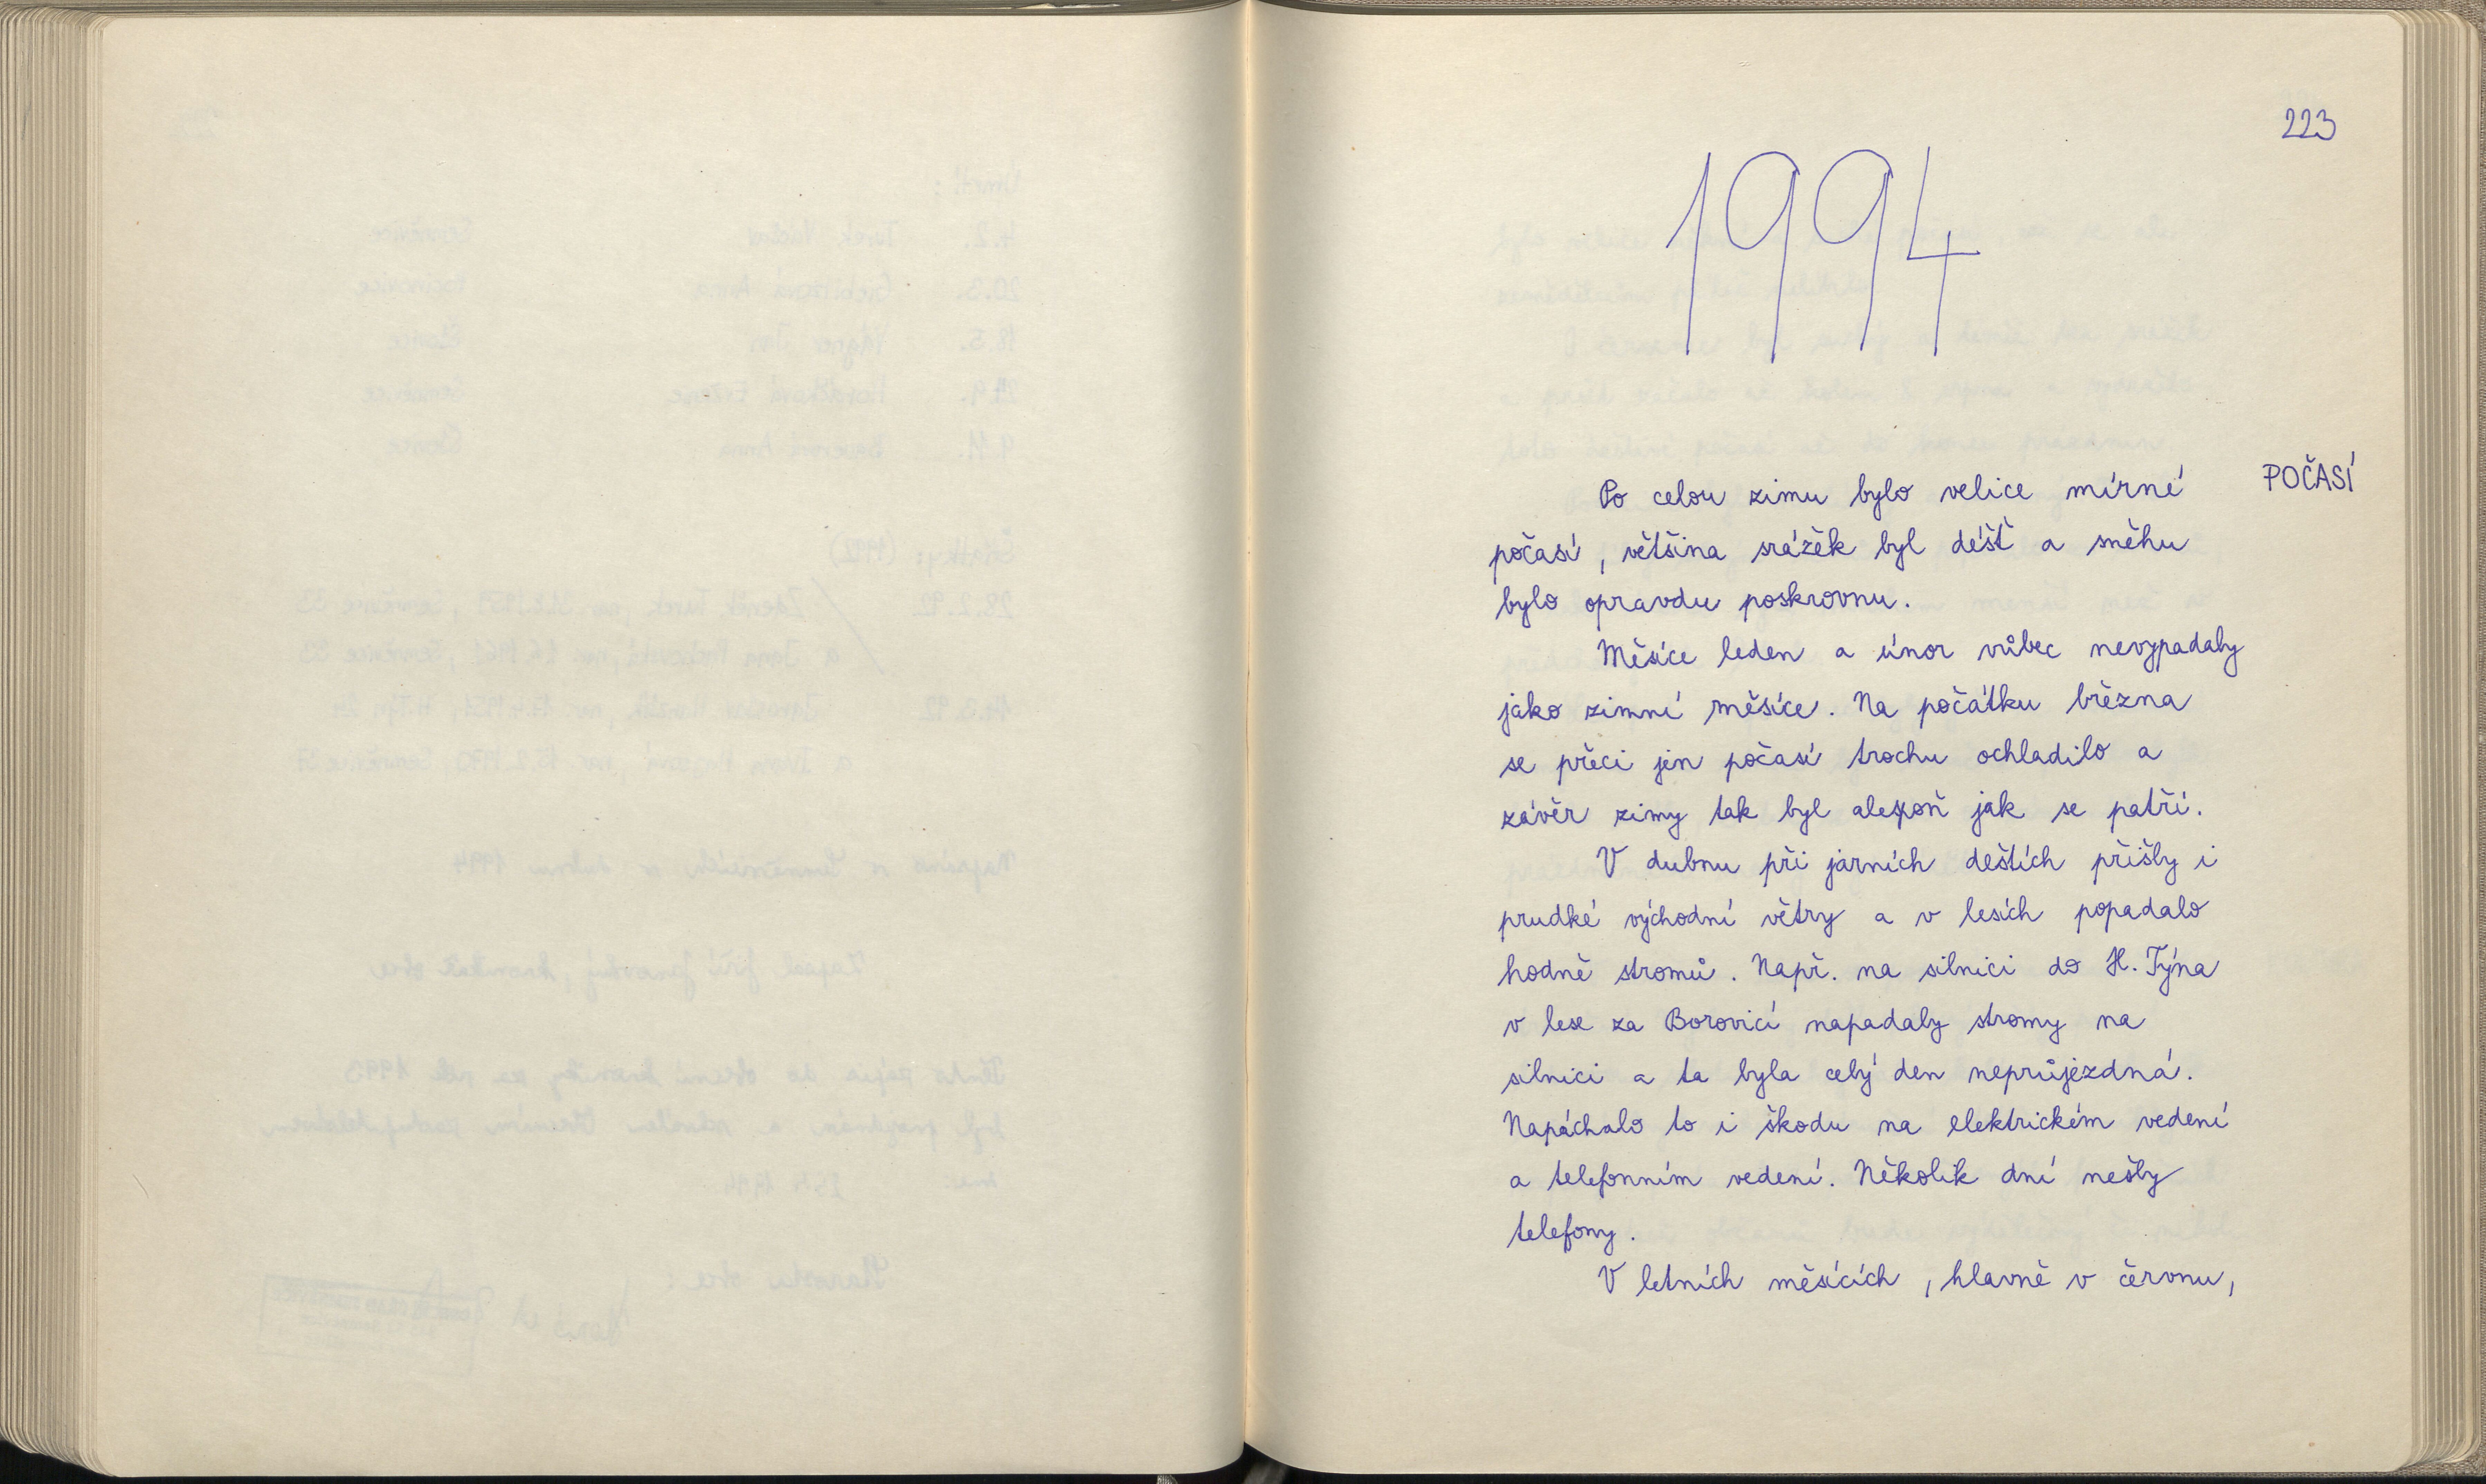 223
1994
POČASÍ
Po celou zimu bylo velice mírné
počasí, většina srážek byl déšť a sněhu
bylo opravdu poskrovnu.
Měsíce leden a únor vůbec nevypadaly
jako zimní měsíce. Na počátku března
se přeci jen počasí trochu ochladilo a
závěr zimy tak byl alespoň jak se patří.
V dubnu při jarních deštích přišly i
prudké východní větry a v lesích popadalo
hodně stromů. Např. na silnici do H. Týna
v lese za Borovicí napadaly stromy na
silnici a ta byla celý den neprůjezdná.
Napáchalo to i škodu na elektrickém vedení
a telefonním vedení. Několik dní nešly
telefony.
V letních měsících, hlavně v červnu,